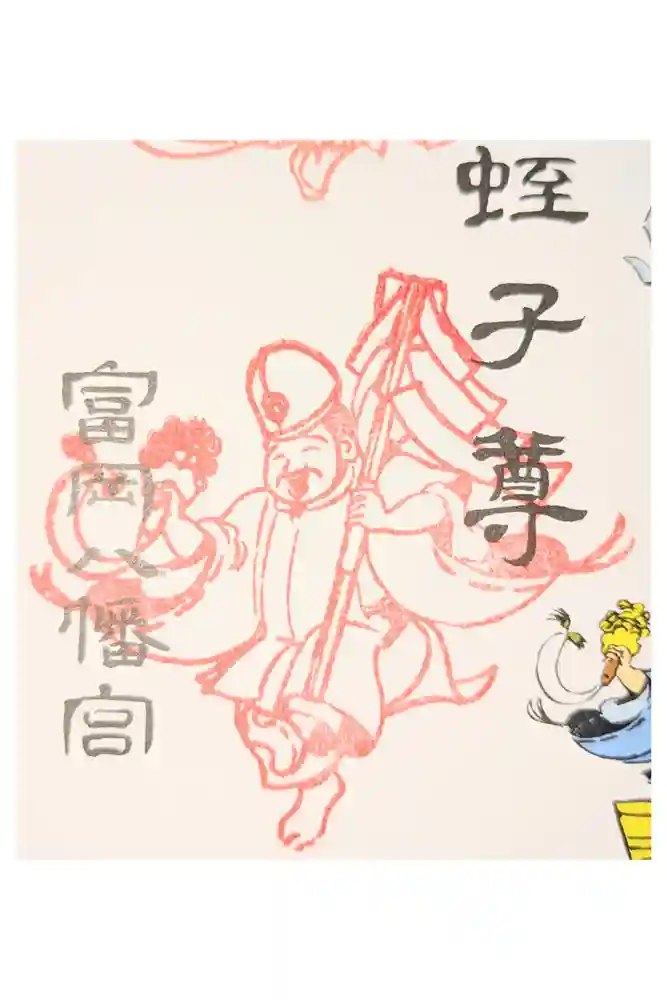 蛭子尊
富岡八幡宮